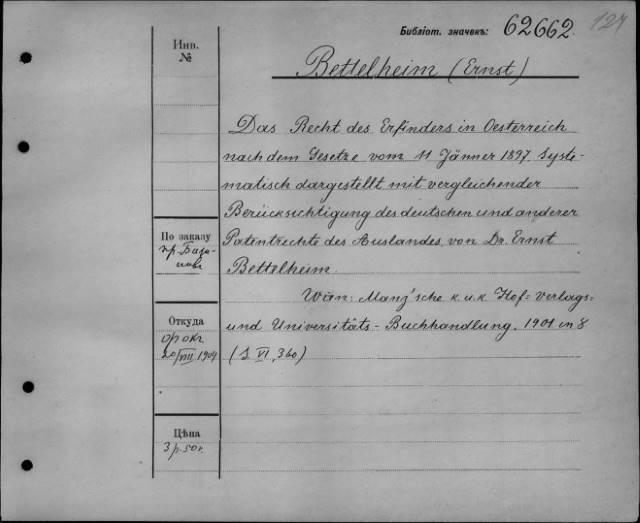 Библіот. значекъ: 62662.
127
Инв.
№
Bettelheim (Ernst)
Das Recht des Erfinders in Oesterreich
nach dem Gesetze vom 11 Jänner 1897. Syste-
matisch dargestellt mit vergleichender
Berücksichtigung des deutschen und anderer
Patentrechte des Auslandes, von Dr. Ernst
Bettelheim.
Wien: Manz'sche k. u. k Hof-Verlags-
und Universitäts-Buchhandlung, 1901 in 8
VI, 360)
По заказу
пр.
Откуда
20/VIII 1904
Цѣна
3 р. 50 к.